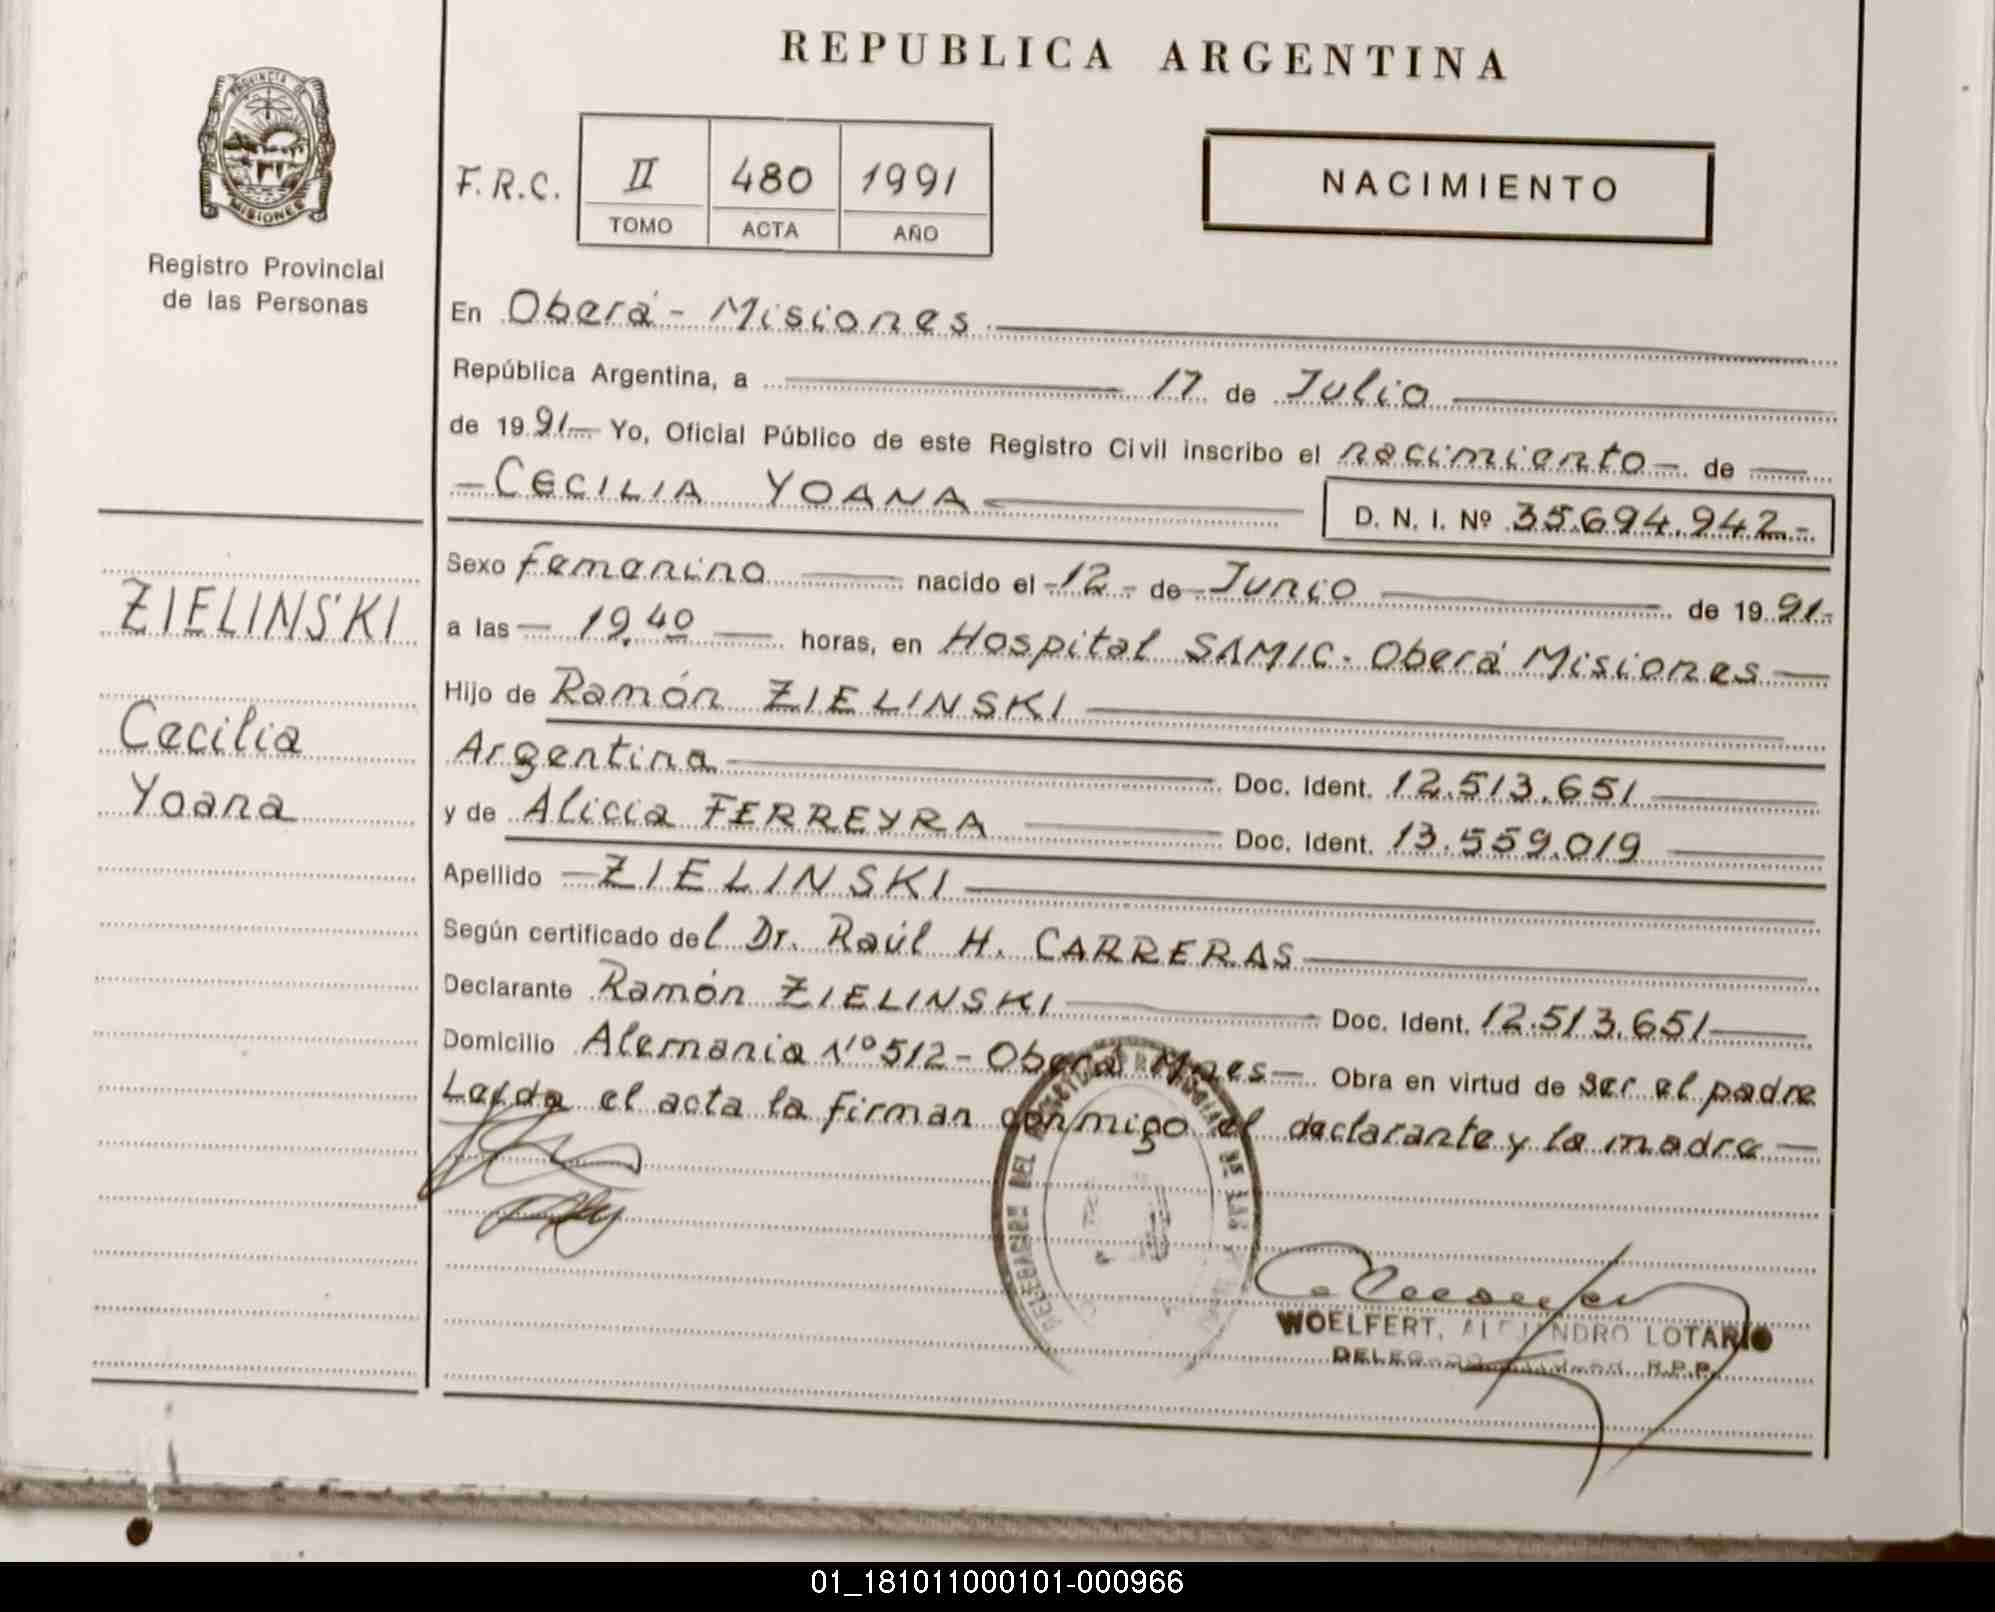 REPUBLICA ARGENTINA
PROVINCIA DE
MISIONES
Registro Provincial
de las Personas
F.R.C. II 480 1991
TOMO ACTA AÑO
NACIMIENTO
En Oberá - Misiones
República Argentina, a 17 de Julio
de 1991 Yo, Oficial Público de este Registro Civil inscribo el nacimiento de
CECILIA YOANA
D. N. I. Nº 35.694.942.-
Sexo femenino nacido el 12 de Junio de 1991
a las 19,40 horas, en Hospital SAMIC. Oberá Misiones
Hijo de Ramón ZIELINSKI
Argentina Doc. Ident. 12.513.651
y de Alicia FERREYRA Doc. Ident. 13.559.019
Apellido ZIELINSKI
Según certificado del Dr. Raúl H. CARRERAS
Declarante Ramón ZIELINSKI Doc. Ident. 12.513.651
Domicilio Alemania Nº 512 - Oberá Mnes Obra en virtud de ser el padre
Leída el acta la firman conmigo el declarante y la madre
ZIELINSKI
Cecilia
Yoana
DEL
WOELFERT, ALEJANDRO LOTARIO
R.P.P.
01_181011000101-000966